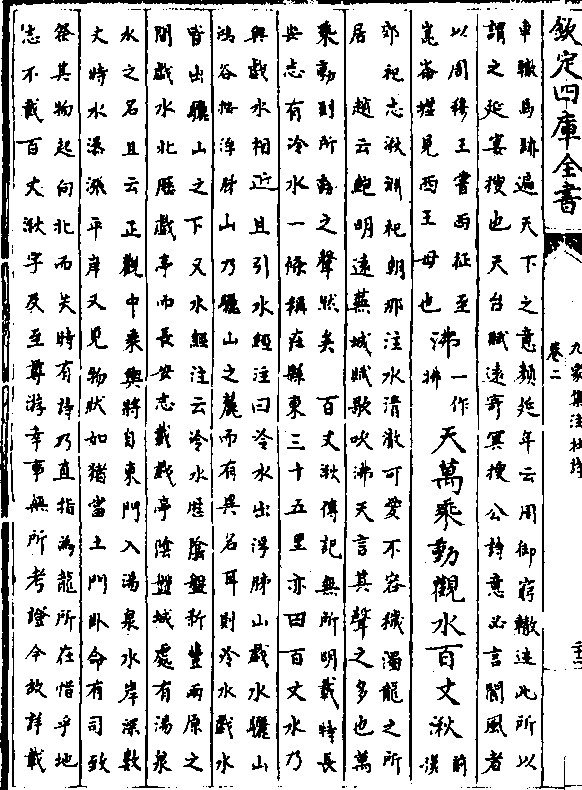 欽定四庫全書
九家集注杜詩
卷二
車轍馬跡遍天下之意顔延年云周御窮轍迹此所以
謂之延宴搜也天台賦遠寄冥搜公詩意必言閬風者
以周穆王書西征至
崑崙墟見西王母也
沸
一作
拂
天萬乘動觀水百丈湫
前
漢
郊祀志湫淵祀朝那注水清澈可愛不容穢濁龍之所
居　趙云鮑明遠蕪城賦歌吹沸天言其聲之多也萬
乘動則所動之聲然矣　百丈湫傳記無所明載特長
安志有冷水一條稱在縣東三十五里亦曰百丈水乃
與戲水相近且引水經注曰冷水出浮肺山戲水驪山
鴻谷按浮肺山乃驪山之麓而有異名耳則冷水戲水
皆出驪山之下又水經注云冷水歴陰盤新豐兩原之
間戲水北歴戲亭而長安志載戲亭陰盤城處有湯泉
水之名且云正觀中乘輿將自東門入湯泉水岸深數
丈時水瀑漲平岸又見物狀如猪當土門卧命有司致
祭其物起向北而失時有詩乃直指為龍所在惜乎地
志不載百丈湫字及至尊游幸事無所考證今故詳載